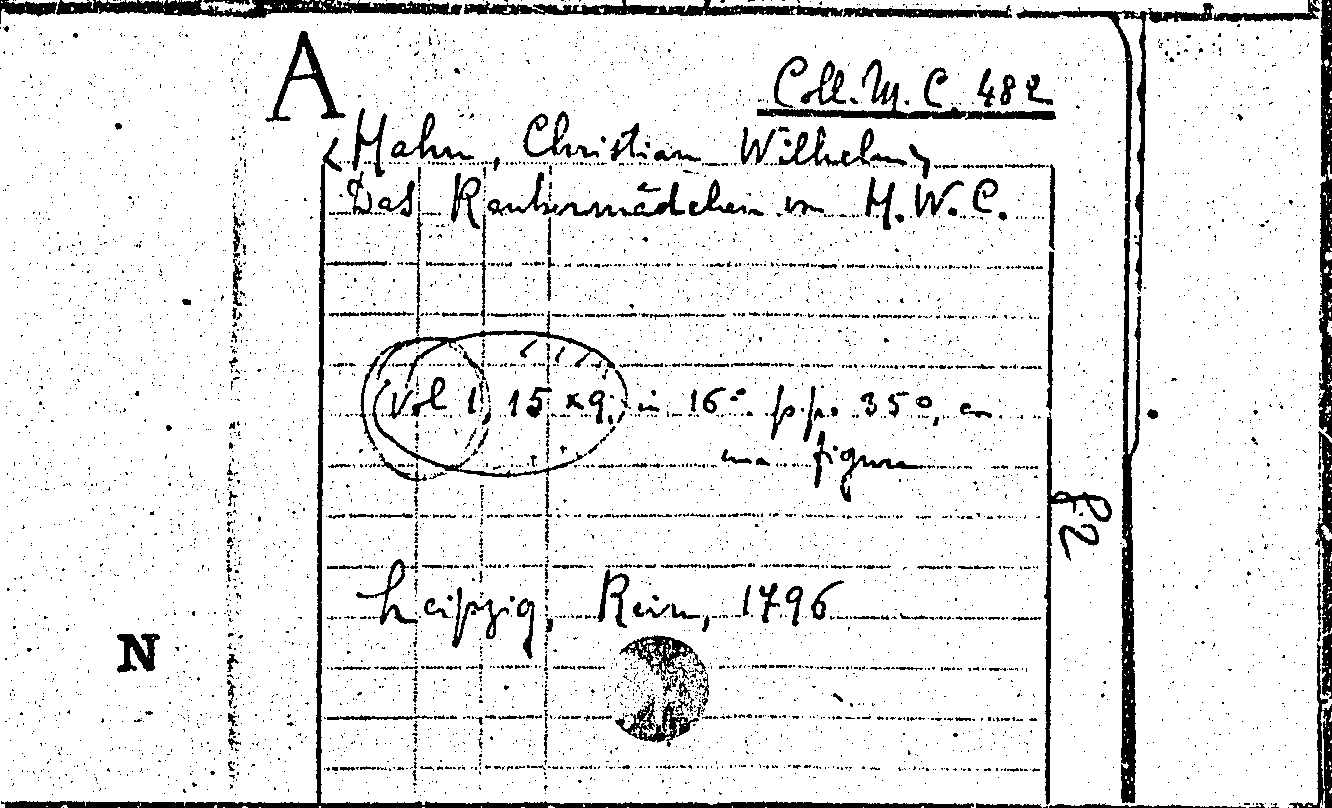 A
Coll. M. C. 482
<Hahn, Christian Wilhelm>
Das Raubermädchen von H. W. C.
Vol 1, 15 x 9, in 16°. pp. 350, con
una figura
82
Leipzig, Rein, 1796
N